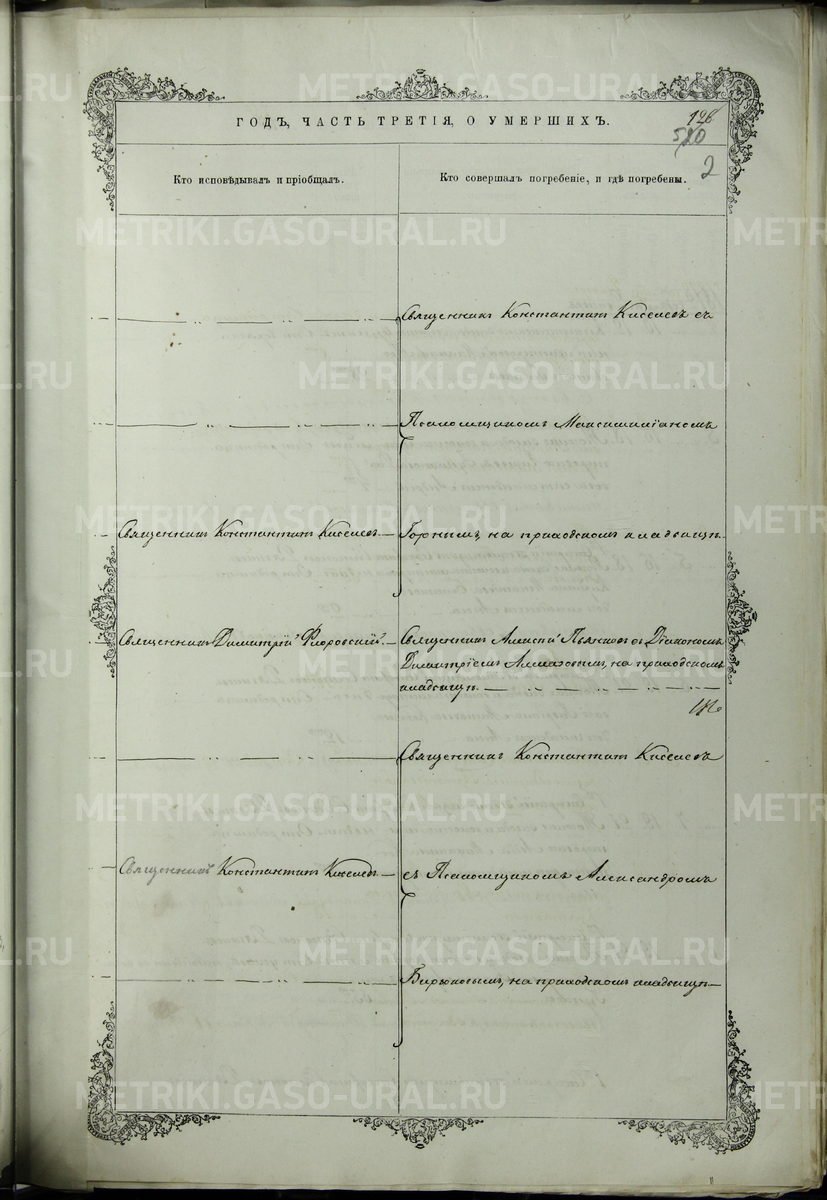 ГОДЪ, ЧАСТЬ ТРЕТІЯ, О УМЕРШИХЪ.
128
2
Кто исповѣдывалъ и пріобщалъ.
Кто совершалъ погребеніе, и гдѣ погребены.
Священникъ Константинъ Киселевъ съ
Псаломщикомъ Максимиліаномъ
Священникъ Константинъ Киселевъ
Горнымъ, на приходскомъ кладбищѣ.
Священникъ Димитрій Флоровскій.
Священникъ Алексѣй Пьянковъ съ Діакономъ
Димитріемъ Алмазовымъ, на приходскомъ
кладбищѣ.
Священникъ Константинъ Киселевъ
Священникъ Константинъ Киселевъ
съ Псаломщикомъ Александромъ
Бирюковымъ, на приходскомъ кладбищѣ
METRIKI.GASO-URAL.RU